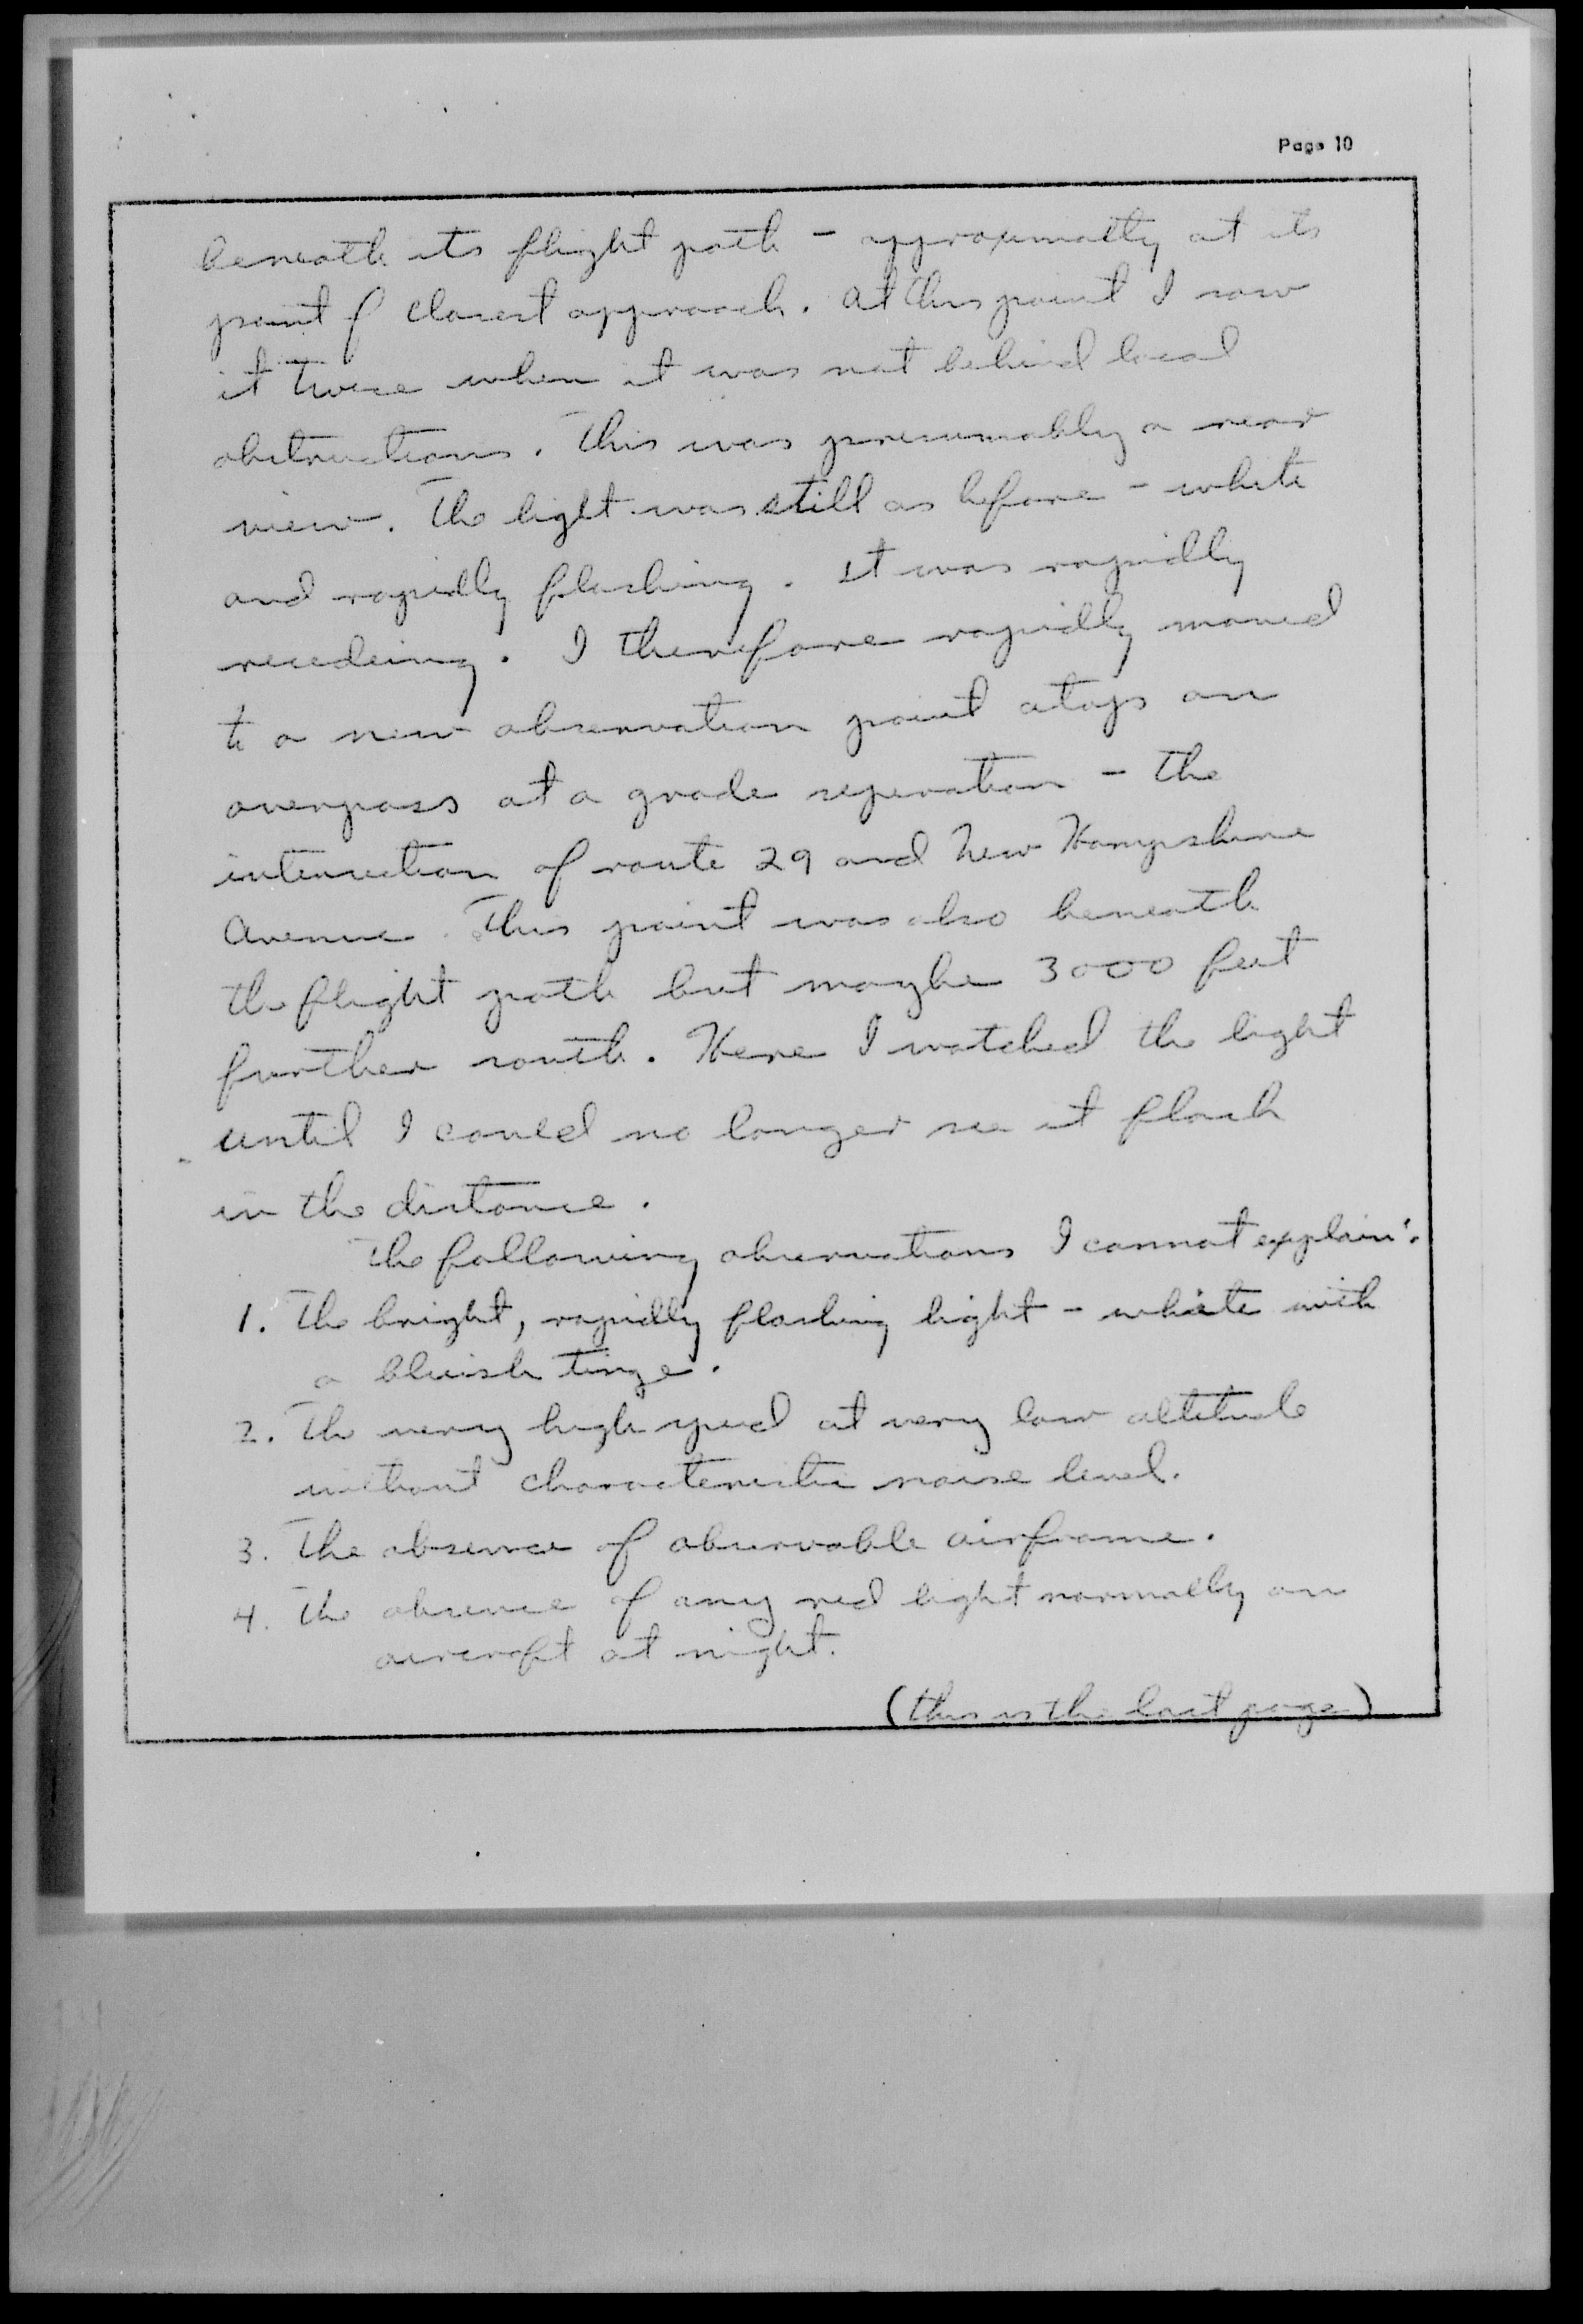 Page 10
beneath its flight path - approximatly at its
point of closest approach. At this point I saw
it twice when it was not behind local
obstructions. This was presumably a rear
view. The light was still as before - white
and rapidly flashing. It was rapidly
receeding. I therefore rapidly moved
to a new observation point atop an
overpass at a grade seperation - the
intersection of route 29 and New Hampshire
Avenue. This point was also beneath
the flight path but maybe 3000 feet
further south. Here I watched the light
until I could no longer see it flash
in the distance.
The following observations I cannot explain:
1. The bright, rapidly flashing light - white with
a bluish tinge.
2. The very high speed at very low altitude
without characteristic noise level.
3. The absence of observable airframe.
4. The absence of any red light normally on
aircraft at night.
(this is the last page)